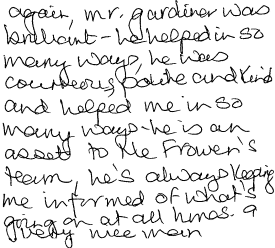 again, mr. gardiner was
brilliant - he helped in so
many ways, he was
courteous, polite and kind
and helped me in so
many ways - he is an
asset to Me Frower's
team, he's always keeping
me informed of what's
going on at all times. a
very nice man